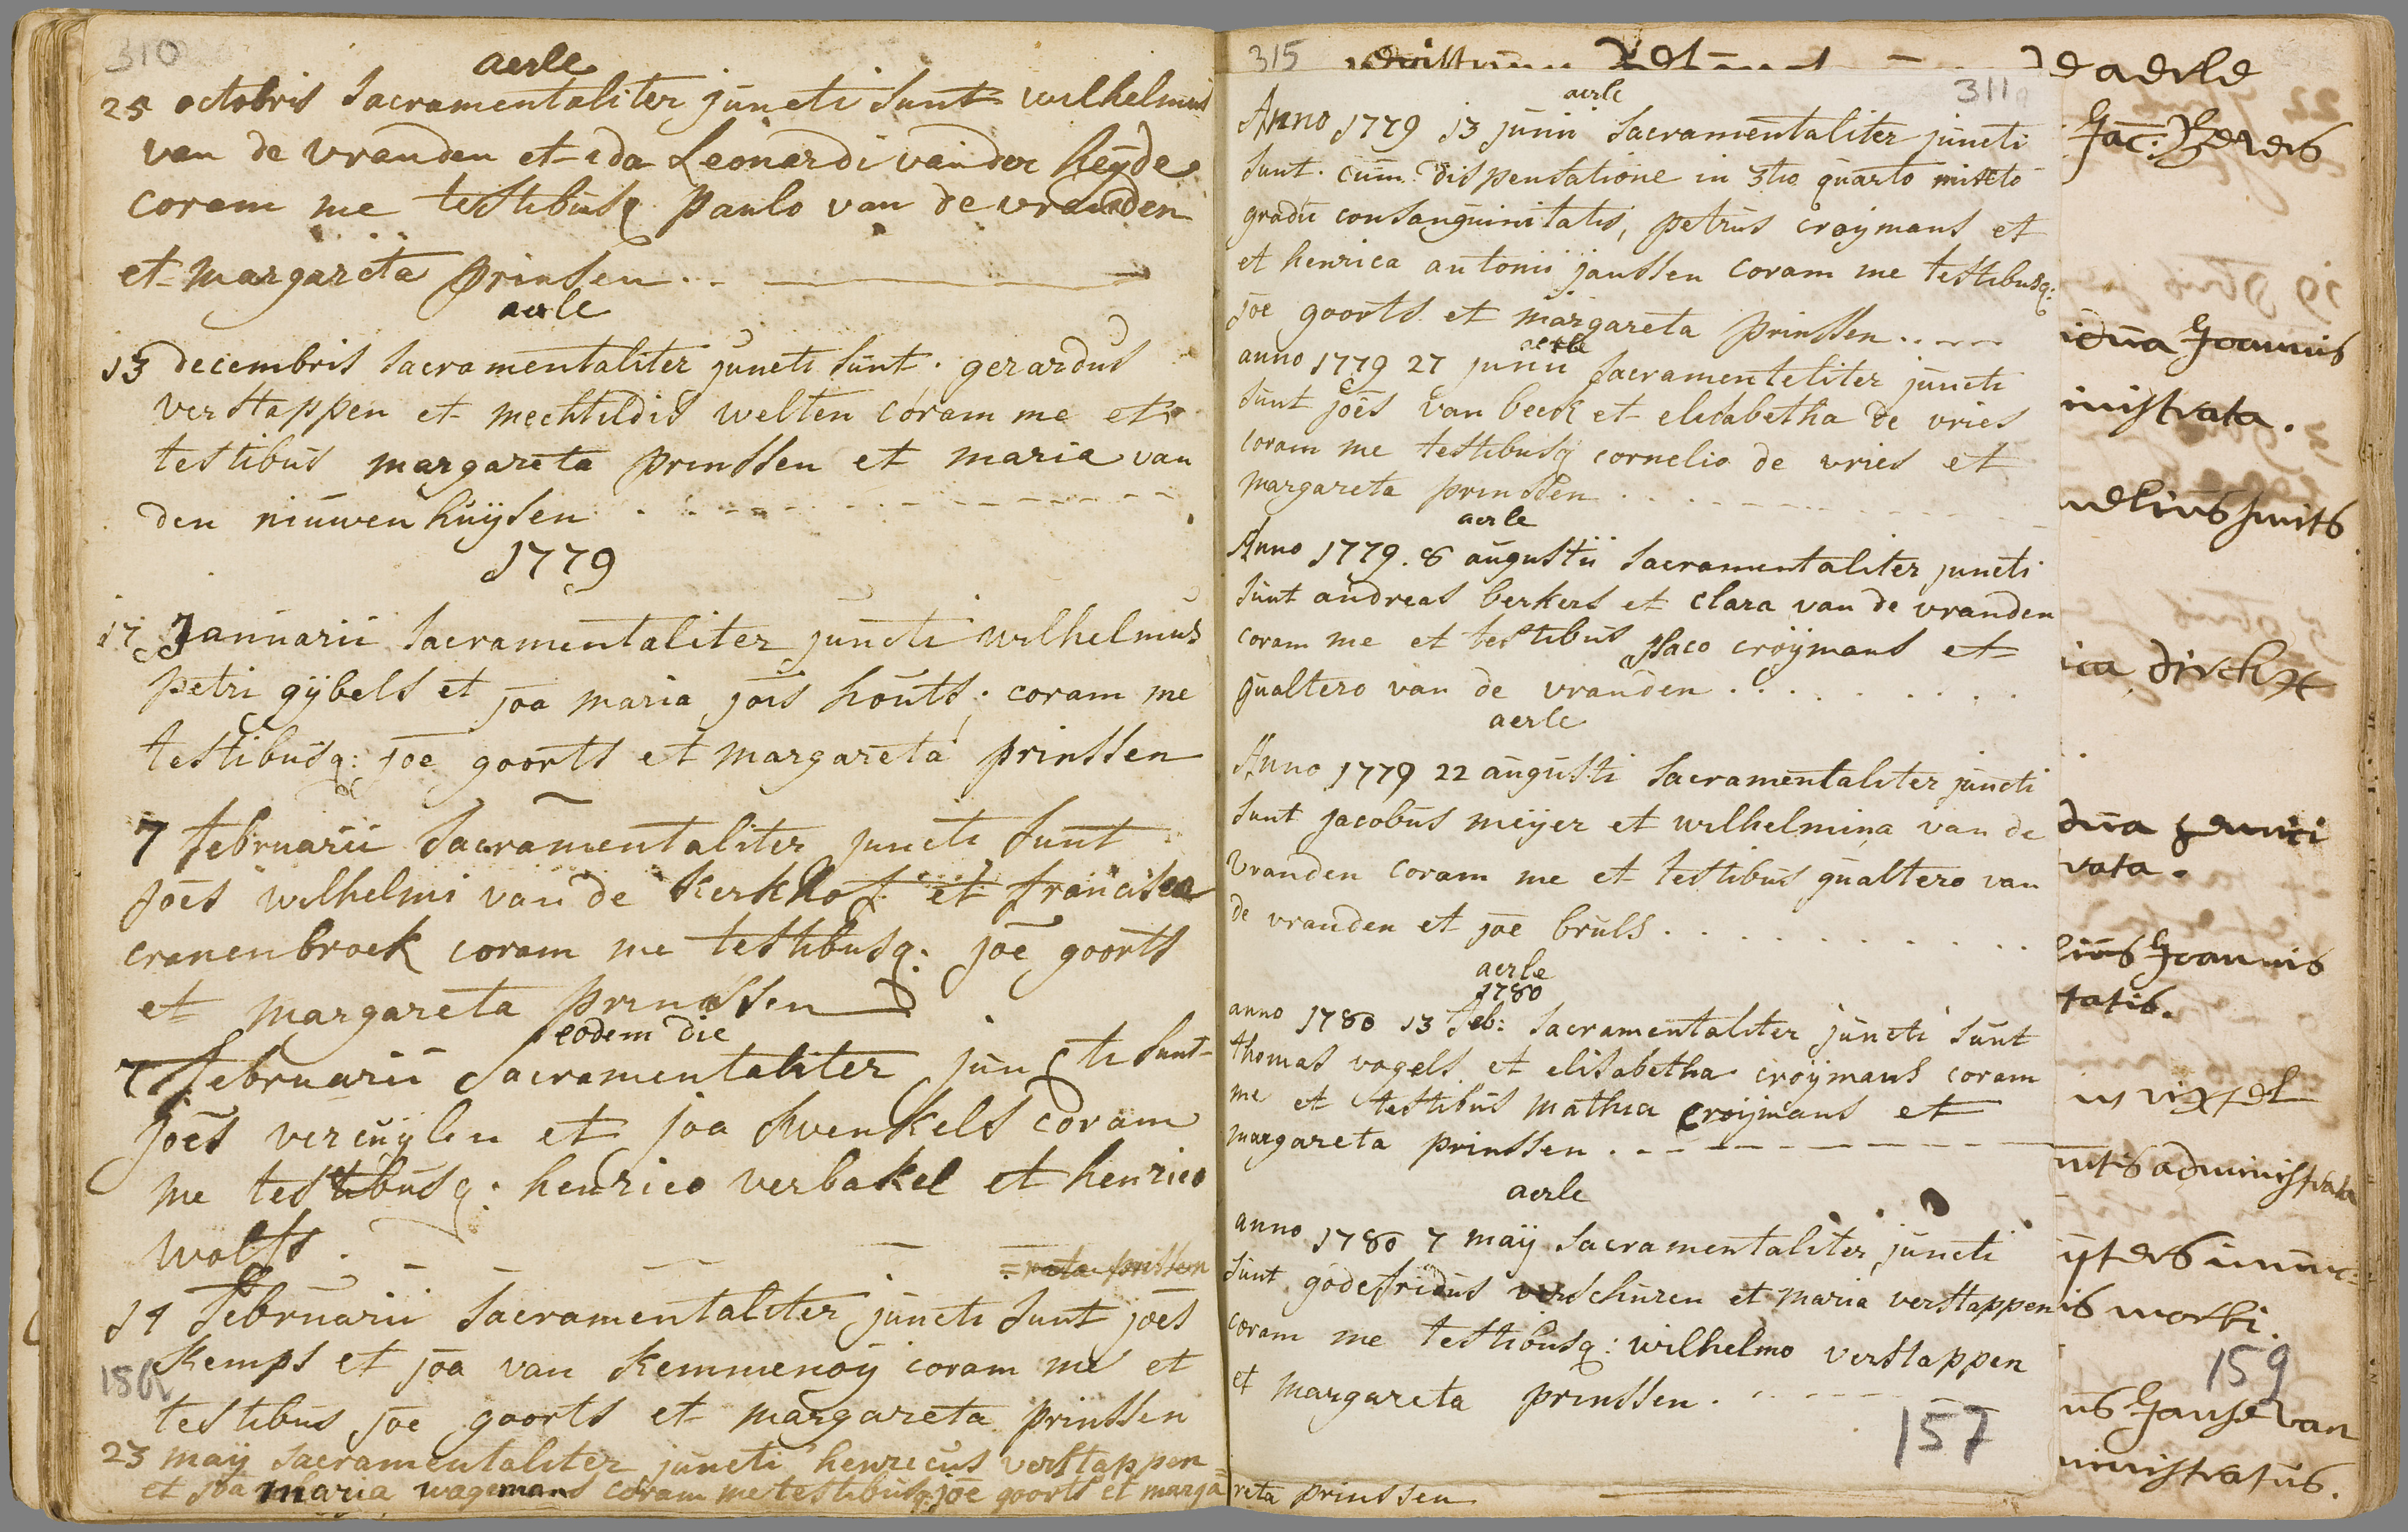 310
aerle
25 octobris sacramentaliter juncti sunt wilhelmus
van de vranden et ida Leonardi vander heyde
coram me testibusq paulo van de vranden
et margareta prinsen..
aerle
13 decembris sacramentaliter juncti sunt. gerardus
verstappen et mechtildis welten coram me et
testibus margareta prinssen et maria van
den nieuwenhuijsen
1779
17 Januarii sacramentaliter juncti wilhelmus
petri gijbels et joa maria jois houts; coram me
testibusq: joe goorts et margareta prinssen
7 februarii sacramentaliter juncti sunt
joes wilhelmi van de kerkhof et francisca
cranenbroek coram me testibusq: joe goorts
et margareta prinssen
eodem die
7 februarii sacramentaliter juncti sunt
joes vercuylen et joa swenkels coram
me testibusq: henrico verbakel et henrico
wolfs.
=reta prissen
14 februarii sacramentaliter juncti sunt joes
kemps et joa van kemmenoij coram me et
156
testibus joe goorts et margareta prinssen
23 maij sacramentaliter juncti henricus verstappen
et joa maria wagemans coram me testibusq: joe goorts et marga=
315
311
aerle
Anno 1779 13 junii sacramentaliter juncti
sunt. cum dispensatione in 3tio quarto mixto
gradu consanguinitatis, petrus croijmans et
et henrica antonii janssen coram me testibusq:
joe goorts et margareta prinssen..
aerle
anno 1779 27 junii sacramenteliter juncti
sunt joes van beek et elisabetha de vries
coram me testibusq cornelio de vries et
margareta prinssen
aerle
Anno 1779. 8 augustii sacramentaliter juncti
sunt andreas berkers et clara van de vranden
coram me et testibus Isaco croijmans et
gualtero van de vranden
aerle
Anno 1779 22 augusti sacramentaliter juncti
sunt jacobus meijer et wilhelmina van de
vranden coram me et testibus gualtero van
de vranden et joe bruls
aerle
1780
anno 1780 13 feb: sacramentaliter juncti sunt
thomas vogels et elisabetha croijmans coram
me et testibus mathia croijmans et
margareta prinssen
aerle
anno 1780 7 maij sacramentaliter juncti
sunt godefridus verschuren et maria verstappen
coram me testibusq: wilhelmo verstappen
et margareta prinssen.
157
reta prinssen
de aerle
Jac: Beyers
idua Joannis
inistrata.
nelius smits
ica dirckx
dua
vata.
lius Joannis
tatis.
in vixtel
ntis administrata
is morbi.
159
us Janse van
ministratus.